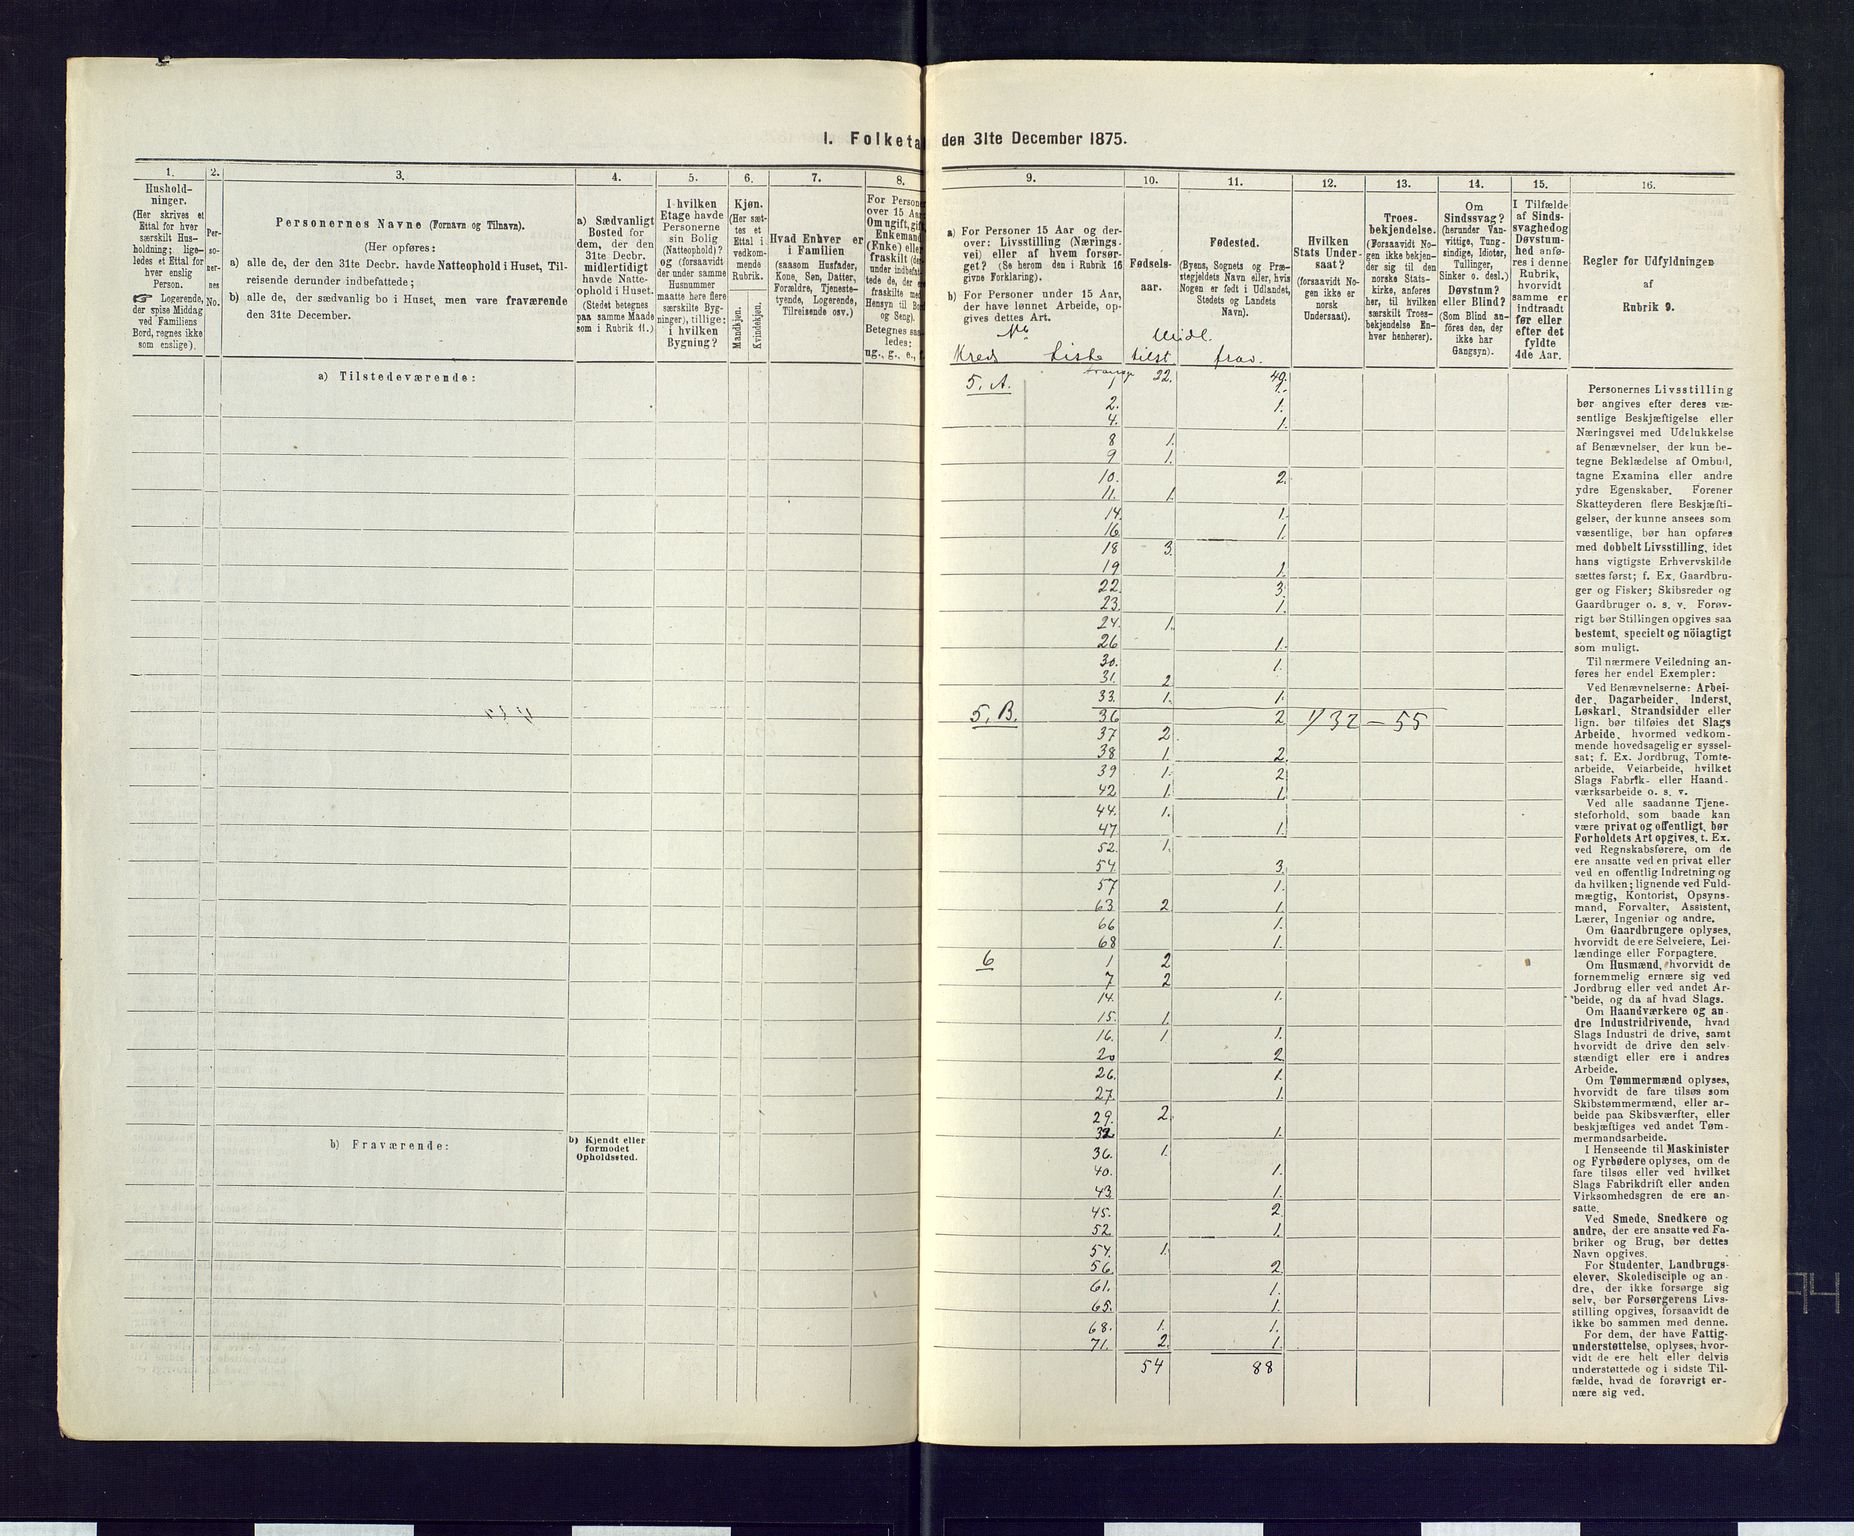 I. Folketa den 31te December 1875.
1.
Hushold-
ninger.
(Her skrives et
Ettal for hver
særskilt Hus-
holdning; lige-
ledes et Ettal for
hver enslig
Person.
☞ Logerende,
der spise Middag
ved Familiens
Bord, regnes ikke
som enslige).
2.
Per-
so-
ner-
nes
No.
3.
Personernes Navne (Fornavn og Tilnavn).
(Her opføres:
a) alle de, der den 31te Decbr. havde Natteophold i Huset, Til-
reisende derunder indbefattede;
b) alle de, der sædvanlig bo i Huset, men vare fraværende
den 31te December.
4.
a) Sædvanligt
Bosted for
dem, der den
31te Decbr.
midlertidigt
havde Natte-
ophold i Huset.
(Stedet betegnes
paa samme Maade
som i Rubrik 11.)
5.
I hvilken
Etage havde
Personerne
sin Bolig
(Natteophold)?
og (forsaavidt
der under samme
Husnummer
maatte høre flere
særskilte Byg-
ninger), tillige:
i hvilken
Bygning?
6.
Kjøn.
(Her sæt-
tes et
Ettal i
vedkom-
mende
Rubrik.
Mandkjøn.
Kvindekjøn.
7.
Hvad Enhver er
i Familien
(saasom Husfader,
Kone, Søn, Datter,
Forældre, Tjeneste-
tyende, Logerende,
Tilreisende osv.)
8.
For Persone
over 15 Aar
Om ugift, gift
Enkemand
(Enke) elle
fraskilt (der
under indbefat
tede de, der e
fraskilte med
Hensyn til Bo
og Seng).
Betegnes saa
ledes:
ug., g., e., f.
9.
a) For Personer 15 Aar og der-
over: Livsstilling (Nærings-
vei) eller af hvem forsør-
get? (Se herom den i Rubrik 16
givne Forklaring).
b) For Personer under 15 Aar,
der have lønnet Arbeide, op-
gives dettes Art.
No
Kreds Liste
10.
Fødsels-
aar.
tilst.
11.
Fødested.
(Byens, Sognets og Præ-
stegjeldets Navn eller, hvis
Nogen er født i Udlandet,
Stedets og Landets
Navn).
Midl.
frav.
12.
Hvilken
Stats Under-
saat?
(forsaavidt No-
gen ikke er
norsk
Undersaat).
13.
Troes-
bekjendelse.
(Forsaavidt No-
gen ikke bekjen-
der sig til den
norske Stats-
kirke, anføres
her, til hvilken
særskilt Troes-
bekjendelse En-
hver henhører).
14.
Om
Sindssvag?
(herunder Van-
vittige, Tung-
sindige, Idioter,
Tullinger,
Sinker o. desl.)
Døvstum?
eller Blind?
(Som Blind an-
føres den, der
ikke har
Gangsyn).
15.
I Tilfælde
af Sinds-
svaghed og
Døvstum-
hed anfø-
res i denne
Rubrik,
hvorvidt
samme er
indtraadt
før eller
efter det
fyldte
4de Aar.
16.
Regler for Udfyldningen
af
Rubrik 9.
a) Tilstedeværende:
b) Fraværende:
b) Kjendt eller
formodet
Opholdssted.
5. A. transp 22. 49.
1 1.
2. 1.
4. 1.
8 1.
9 1.
10. 2.
11. 1.
14. 1.
16. 1.
18 3.
19 1.
22. 3.
23. 1.
24. 1.
26 1.
30. 1.
31. 2
33. 1. 1.
5. B. 36 2 1/32 - 55
37 2
38 1. 2.
39 1. 2
42 1. 1
44. 1.
47 1.
52. 1.
54. 3.
57 1.
63 2. 1.
66 1.
68 1.
6 1 2
7 2
14. 1.
15. 1.
16. 1 1.
20 2
26. 1.
27. 1.
29. 2.
32 1.
36. 1.
40. 1.
43. 1.
45. 2
52. 1.
54. 1.
56. 2.
61. 1.
65. 1.
68. 1. 1.
71. 2. 1.
54 88
Personernes Livsstilling
bør angives efter deres væ-
sentlige Beskjæftigelse eller
Næringsvei med Udelukkelse
af Benævnelser, der kun be-
tegne Beklædelse af Ombud,
tagne Examina eller andre
ydre Egenskaber. Forener
Skatteyderen flere Beskjæfti-
gelser, der kunne ansees som
væsentlige, bør han opføres
med dobbelt Livsstilling, idet
hans vigtigste Erhvervskilde
sættes først; f. Ex. Gaardbru-
ger og Fisker; Skibsreder og
Gaardbruger o. s. v. Forøv-
rigt bør Stillingen opgives saa
bestemt, specielt og nöiagtigt
som muligt.
Til nærmere Veiledning an-
føres her endel Exempler:
Ved Benævnelserne: Arbei-
der, Dagarbeider, Inderst,
Løskarl, Strandsidder eller
lign. bør tilføies det Slags
Arbeide, hvormed vedkom-
mende hovedsagelig er syssel-
sat; f. Ex. Jordbrug, Tomte-
arbeide, Veiarbeide, hvilket
Slags Fabrik- eller Haand-
værksarbeide o. s. v.
Ved alle saadanne Tjene-
steforhold, som baade kan
være privat og offentligt, bør
Forholdets Art opgives, t. Ex.
ved Regnskabsførere, om de
ere ansatte ved en privat eller
ved en offentlig Indretning og
da hvilken; lignende ved Fuld-
mægtig, Kontorist, Opsyns-
mand, Forvalter, Assistent,
Lærer, Ingeniør og andre.
Om Gaardbrugere oplyses,
hvorvidt de ere Selveiere, Lei-
lændinge eller Forpagtere.
Om Husmænd, hvorvidt de
fornemmelig ernære sig ved
Jordbrug eller ved andet Ar-
beide, og da af hvad Slags.
Om Haandværkere og an-
dre Industridrivende, hvad
Slags Industri de drive, samt
hvorvidt de drive den selv-
stændigt eller ere i andres
Arbeide.
Om Tømmermænd oplyses,
hvorvidt de fare tilsøs som
Skibstømmermænd, eller ar-
beide paa Skibsværfter, eller
beskjæftiges ved andet Tøm-
mermandsarbeide.
I Henseende til Maskinister
og Fyrbødere oplyses, om de
fare tilsøs eller ved hvilket
Slags Fabrikdrift eller anden
Virksomhedsgren de ere an-
satte.
Ved Smede, Snedkere og
andre, der ere ansatte ved Fa-
briker og Brug, bør dettes
Navn opgives.
For Studenter, Landbrugs-
elever, Skoledisciple og an-
dre, der ikke forsørge sig
selv, bør Forsørgerens Livs-
stilling opgives, forsaavidt de
ikke bo sammen med denne.
For dem, der have Fattig-
understøttelse, oplyses, hvor-
vidt de ere helt eller delvis
understøttede og i sidste Til-
fælde, hvad de forøvrigt er-
nære sig ved.